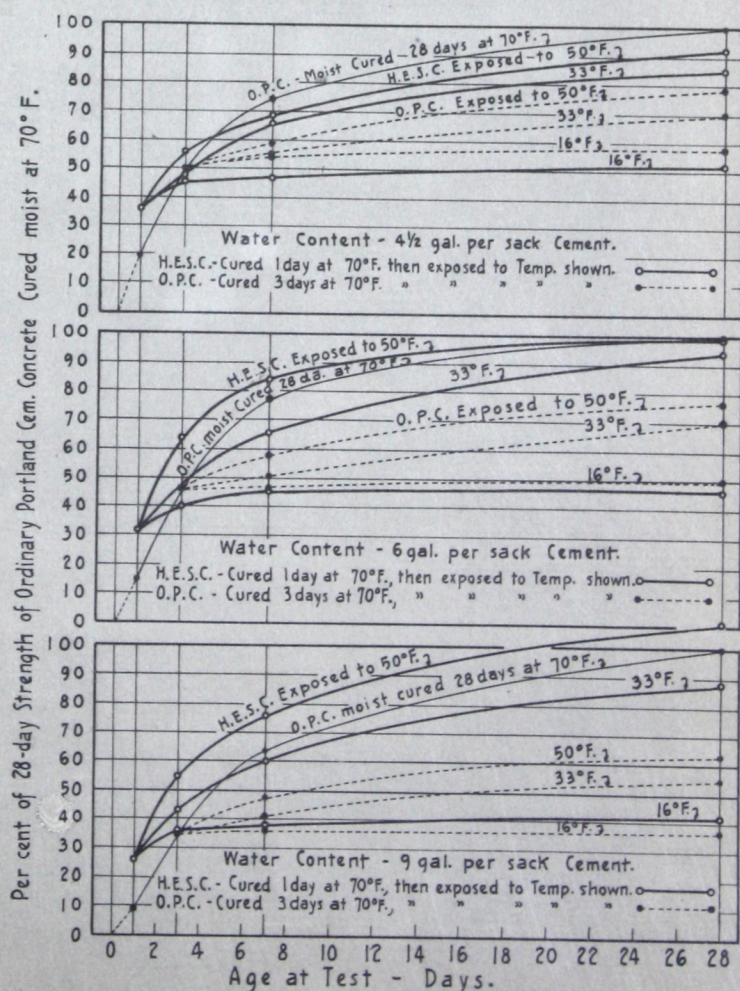 Per cent of 28-day Strength of Ordinary Portland Cem. Concrete Cured moist at 70° F.
100
90
80
70
60
50
40
30
20
10
0
O.P.C. - Moist Cured - 28 days at 70°F.
H.E.S.C. Exposed to 50°F.
33°F.
O.P.C. Exposed to 50°F.
33°F.
16°F.
16°F.
Water Content - 4½ gal. per sack Cement.
H.E.S.C.- Cured 1 day at 70°F. then exposed to Temp. shown.
O.P.C. - Cured 3 days at 70°F. " " " " "
100
90
80
70
60
50
40
30
20
10
0
H.E.S.C. Exposed to 50°F.
O.P.C. moist Cured 28 da. at 70°F.
33°F.
O.P.C. Exposed to 50°F.
33°F.
16°F.
Water Content - 6 gal. per sack Cement.
H.E.S.C. - Cured 1 day at 70°F., then exposed to Temp. shown.
O.P.C. - Cured 3 days at 70°F., " " " " "
100
90
80
70
60
50
40
30
20
10
0
H.E.S.C. Exposed to 50°F.
O.P.C. moist cured 28 days at 70°F.
33°F.
50°F.
33°F.
16°F.
16°F.
Water Content - 9 gal. per sack Cement.
H.E.S.C. - Cured 1 day at 70°F., then exposed to Temp. shown.
O.P.C. - Cured 3 days at 70°F., " " " " "
0 2 4 6 8 10 12 14 16 18 20 22 24 26 28
Age at Test - Days.